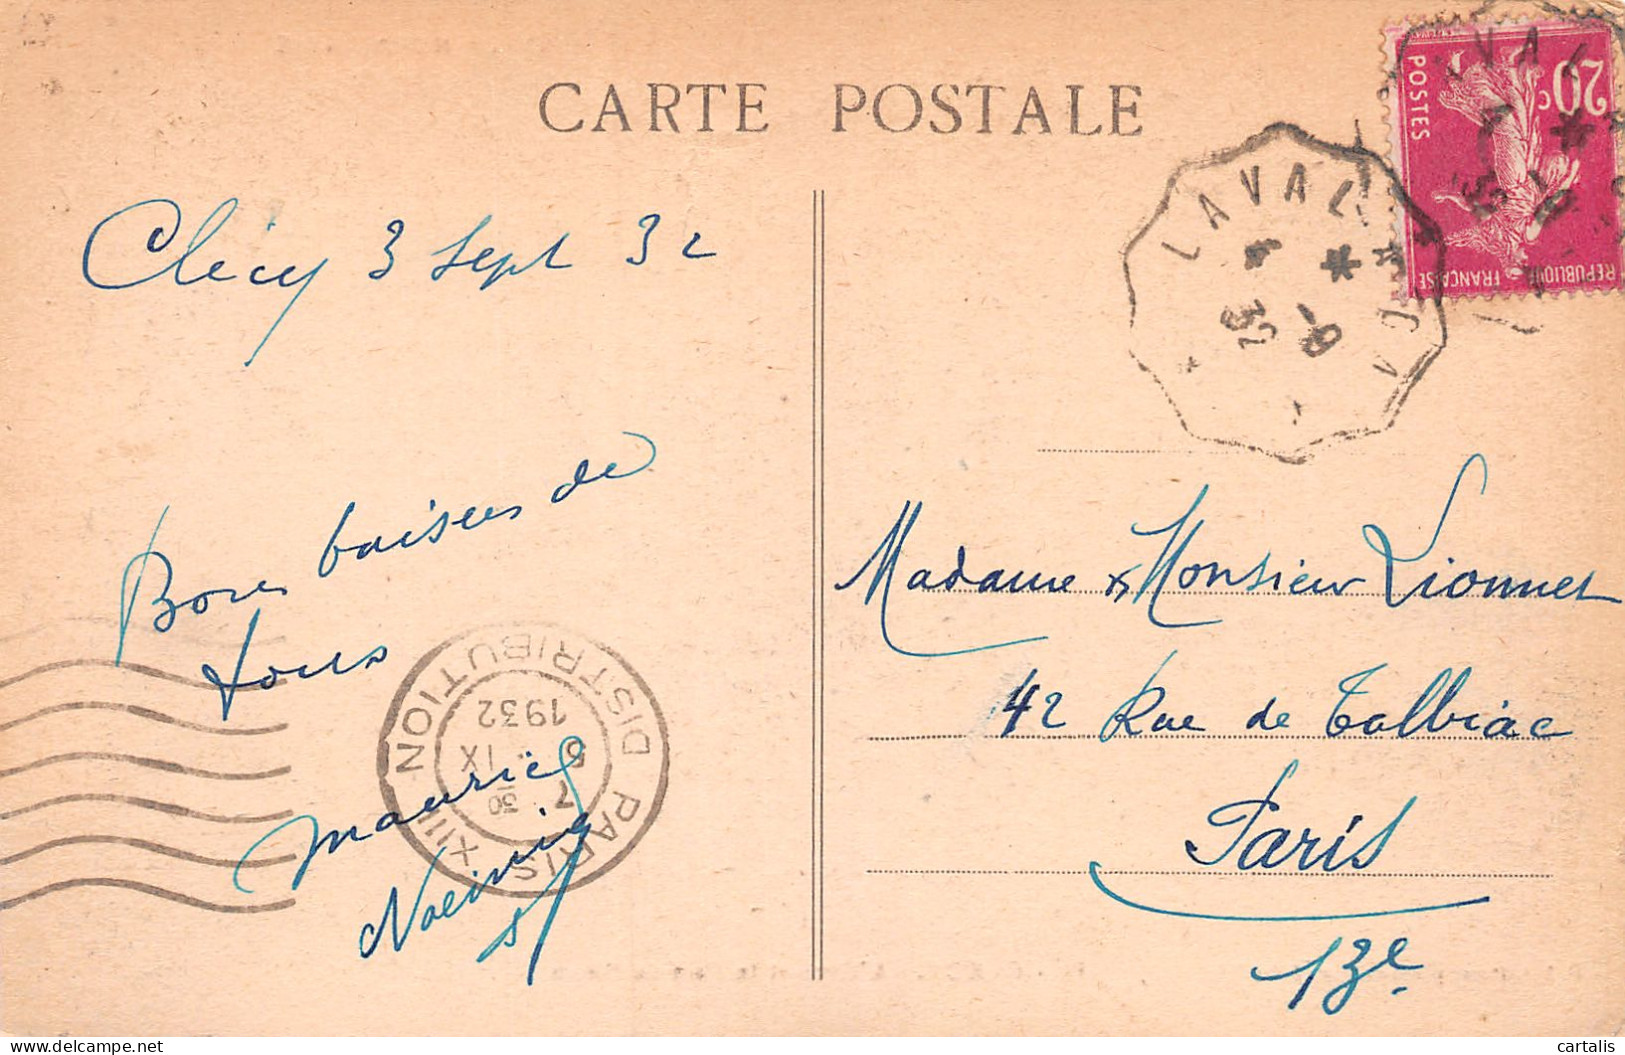 CARTE POSTALE
Clécy 3 Sept 32
Bons baisers de
tous
Maurice
Noémie
Madame & Monsieur Lionnet
42 Rue de Tolbiac
Paris
13e.
20c
POSTES
REPUBLIQUE
FRANCAISE
LAVAL
4
* 9-
32
PARIS XIII DISTRIBUTION
7 30
6 IX
1932
cartalis
delcampe.net